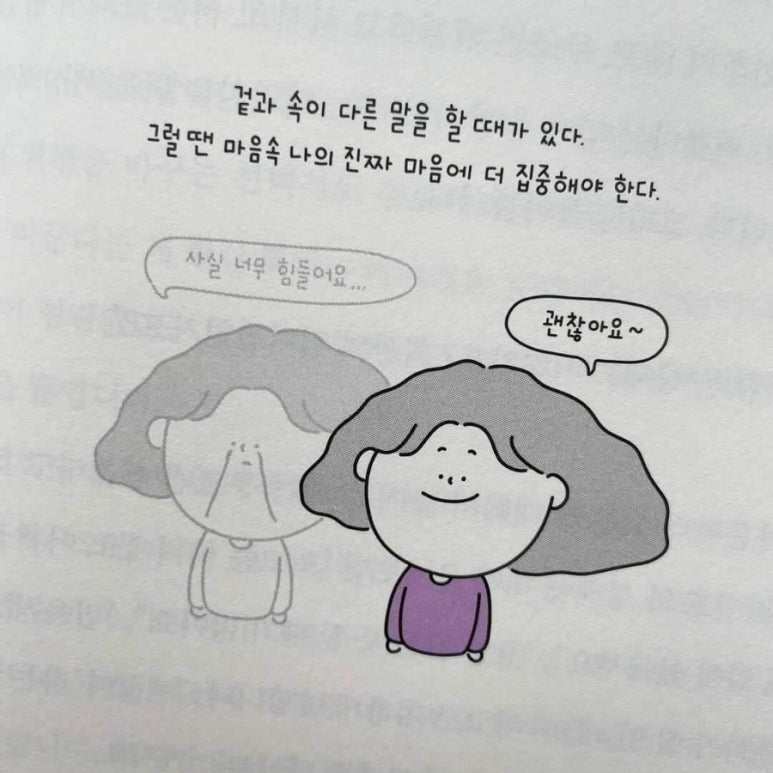 겉과 속이 다른 말을 할 때가 있다.
그럴 땐 마음속 나의 진짜 마음에 더 집중해야 한다.
사실 너무 힘들어요...
괜찮아요~